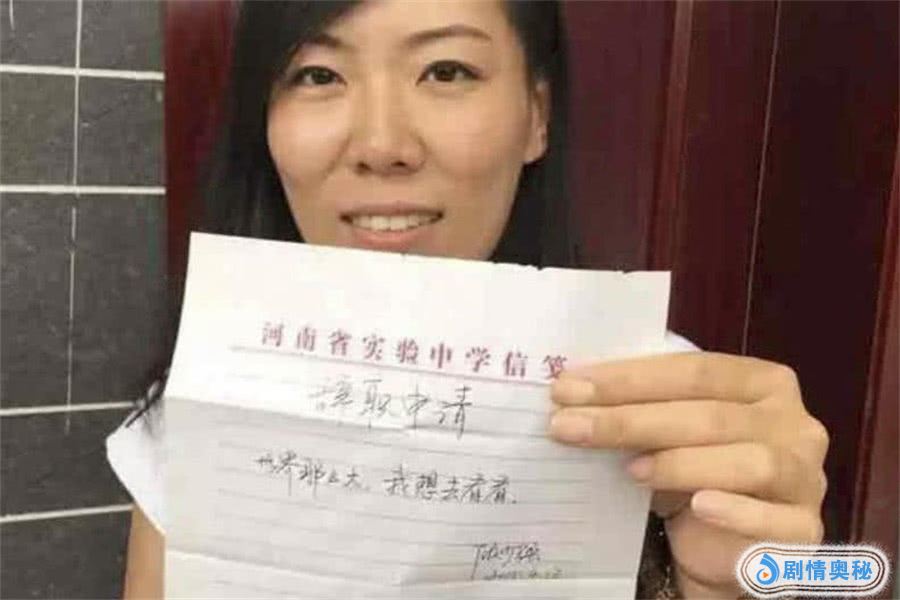 河南省实验中学信笺
辞职申请
世界那么大，我想去看看。
剧情奥秘